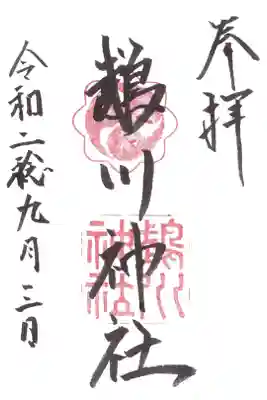 奉拝
鵡川神社
鵡川
神社
令和二歳九月三日